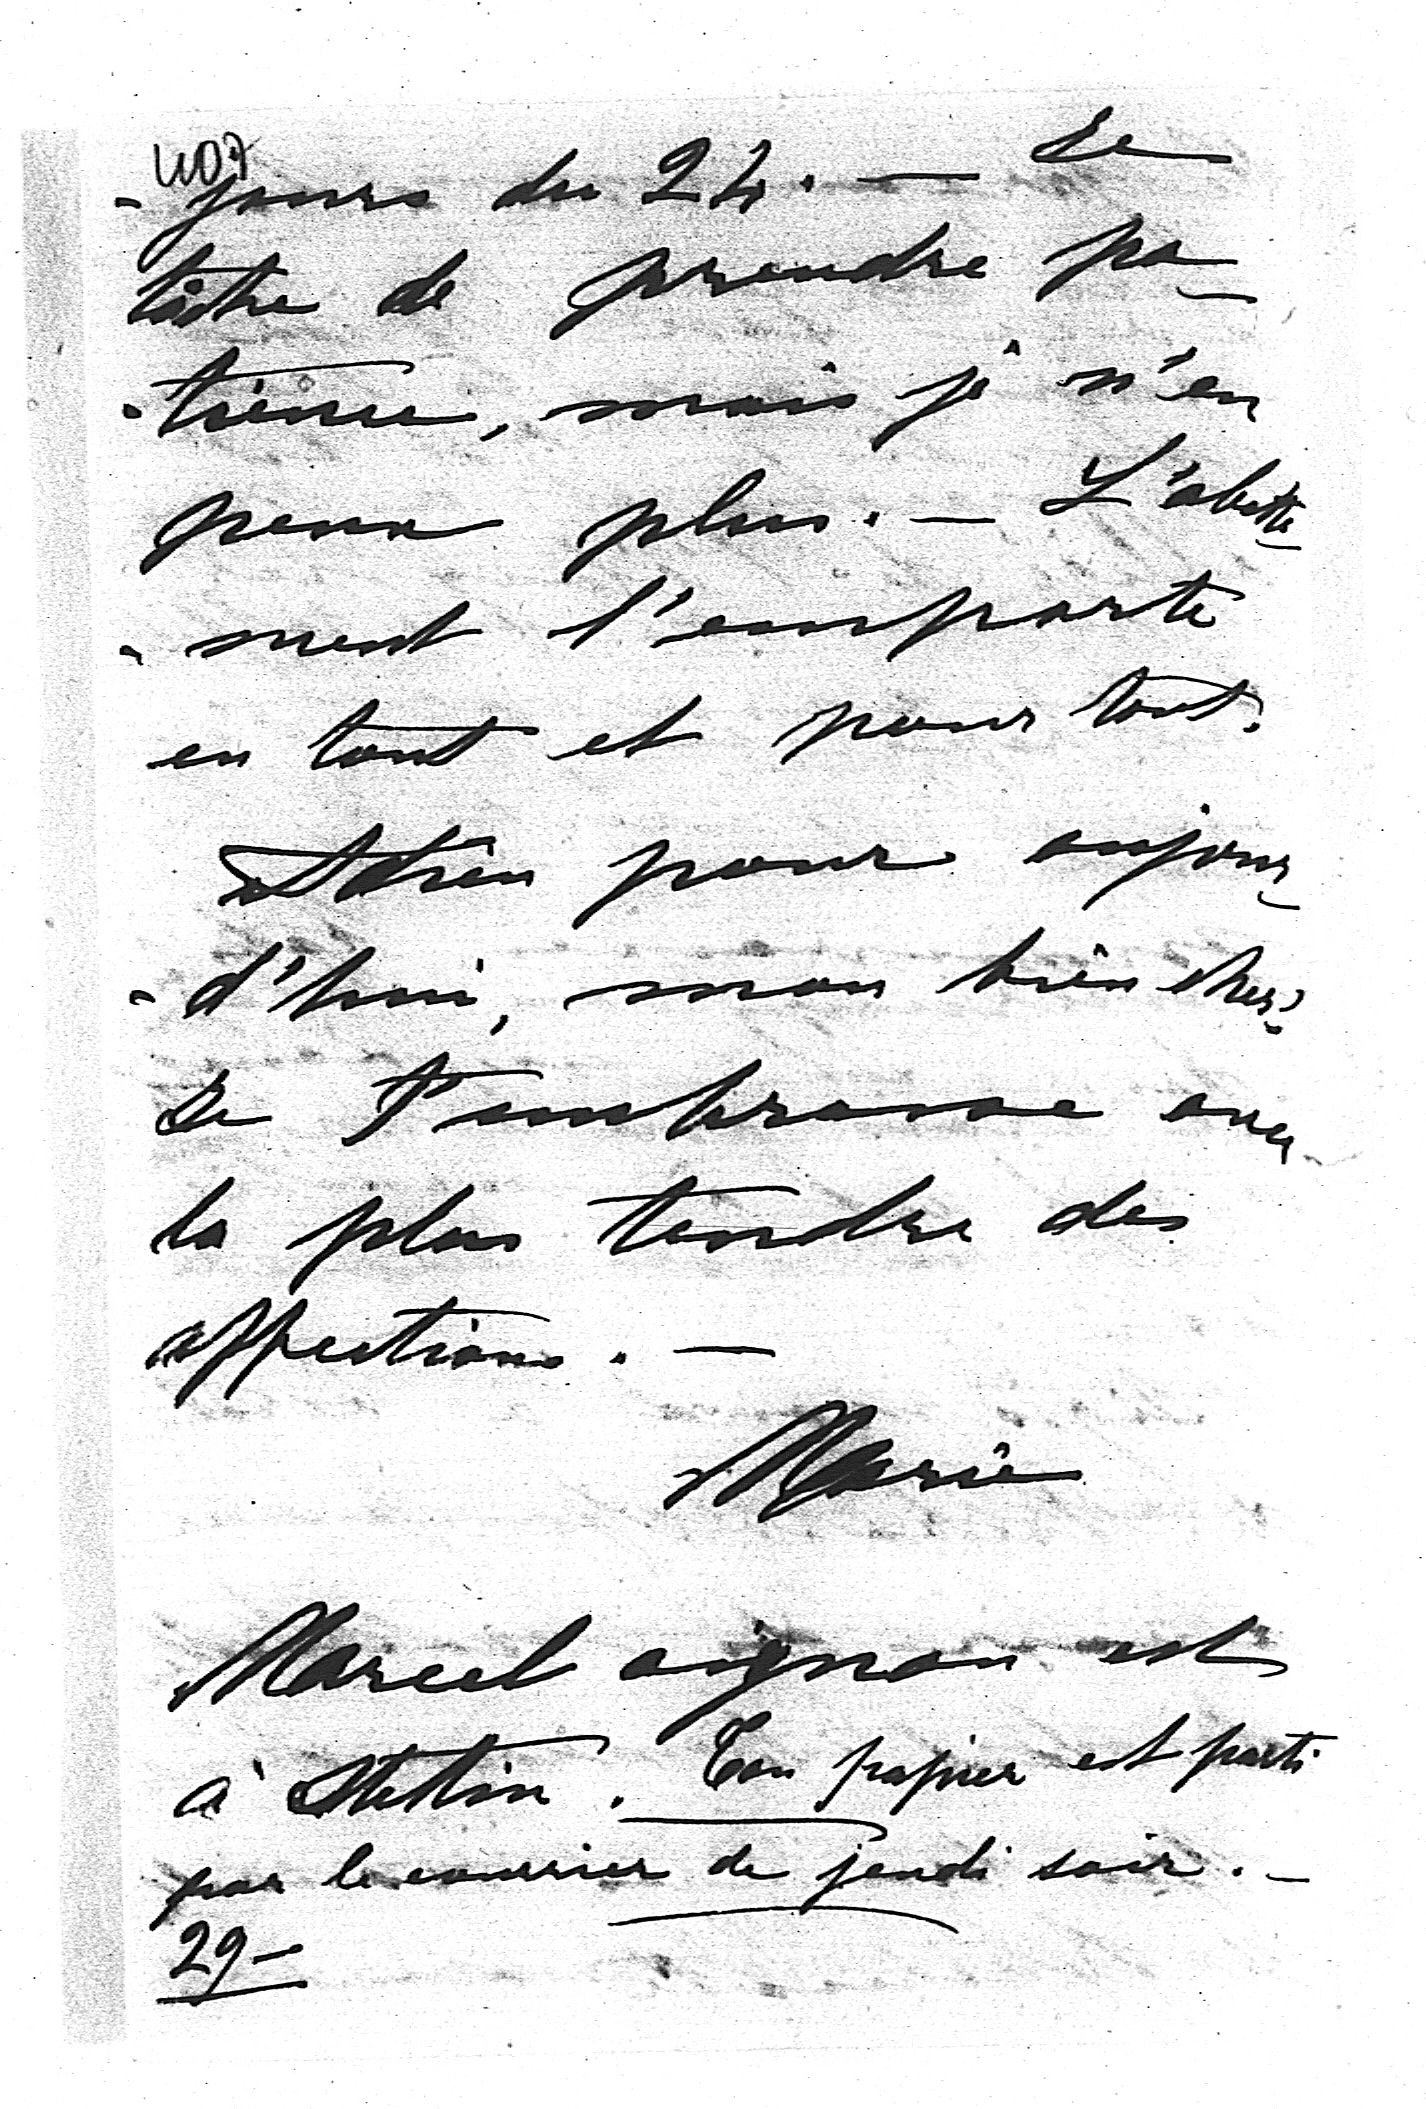 407
-jours du 24. — Je
tâche de prendre pa-
-tience, mais je n'en
peux plus. — L'abatte-
-ment l'emporte
en tout et pour tout.
Adieu pour aujour-
-d'hui, mon bien cher.
Je t'embrasse avec
la plus tendre des
affections. —
Marie
Marcel aignan est
à Stettin. Ton papier est parti
par le courrier de jeudi soir. —
29—